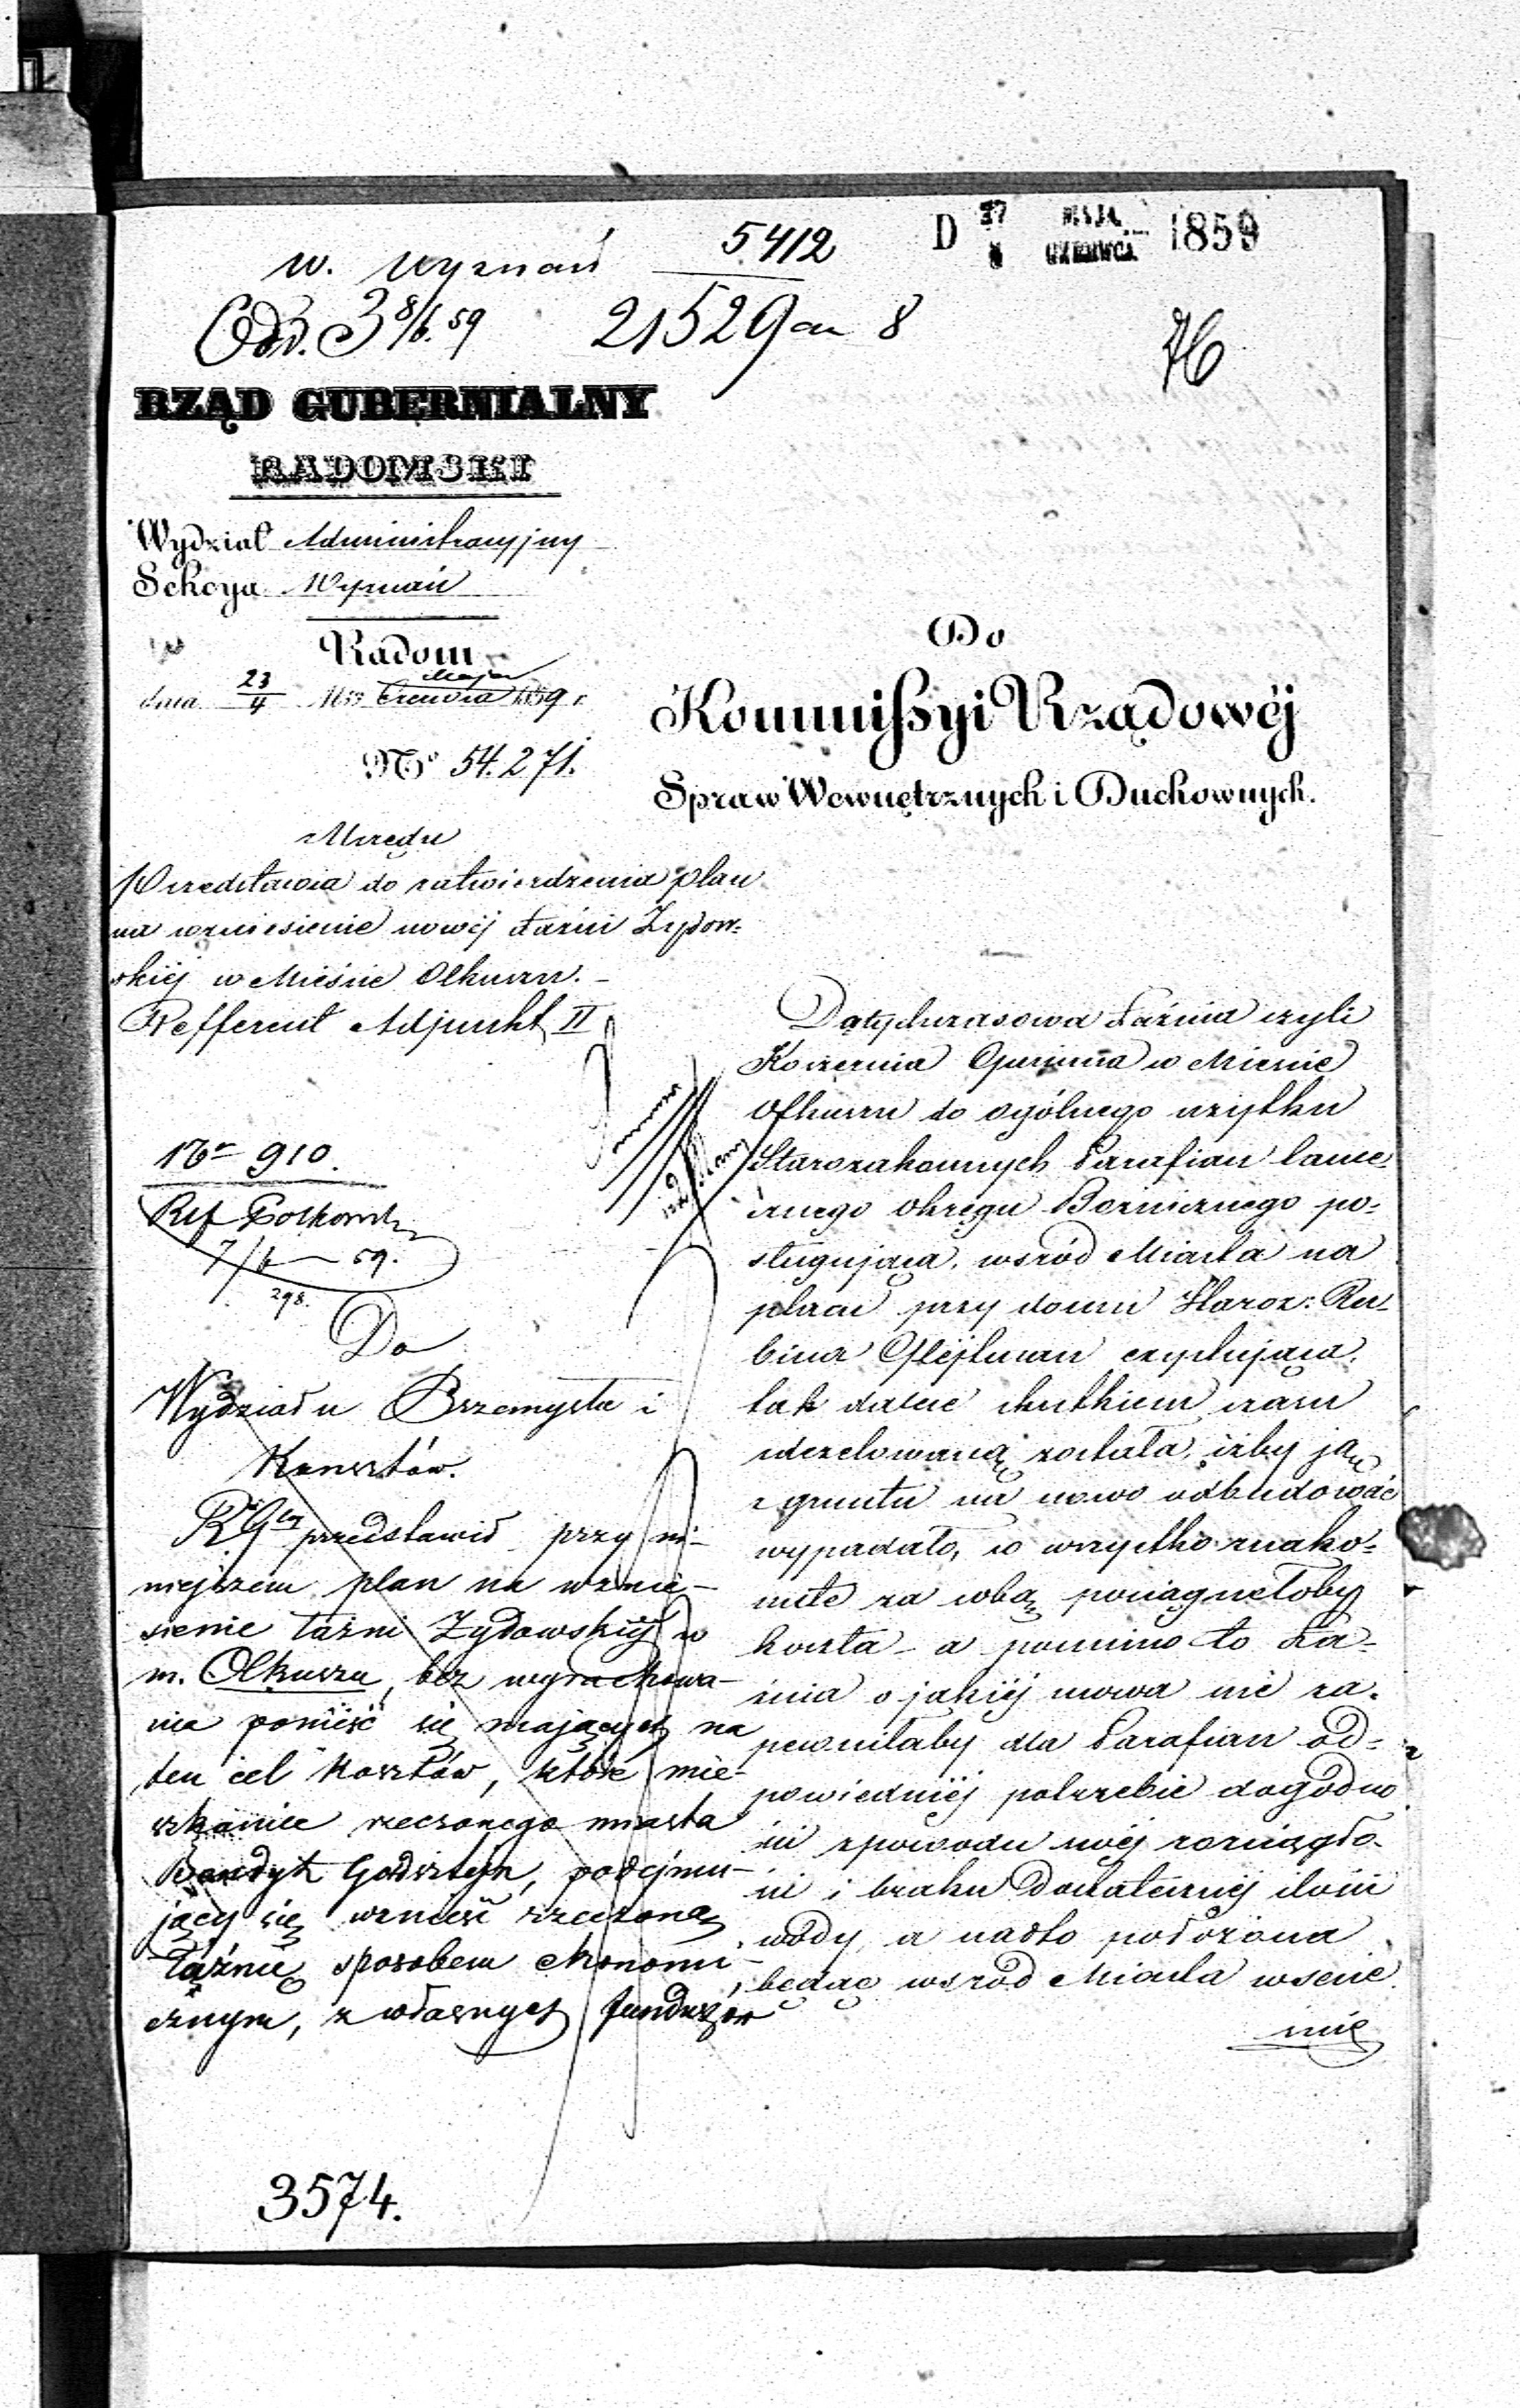 w. Wyznań 5412
D 27 MAJA 1859
8 CZERWCA
Odd. 3 8/6. 59 21529 8
RZĄD GUBERNIALNY
RADOMSKI
Wydział Administracyjny
Sekcya Wyznań
Radom
dnia 23/4 Mca Maja Czerwca 1859 r.
No 54.271.
z Urzędu
Przedstawia do zatwierdzenia plan
na wzniesienie nowéj Łaźni Żydow-
skiéj w Mieście Olkuszu. -
Refferent Adjunkt II
Nr 910.
Ref
7/6 - 59.
298.
Do
Wydziału Przemysłu i
Kunsztów.
R. Glny przedstawił przy ni-
niejszem plan na wznie-
sienie łaźni Żydowskiéj w
m. Olkuszu, bez wyrachowa-
nia ponieść się mających na
ten cel kosztów, które mie-
szkaniec rzeczonego miasta
podejmu-
jący się wznieść rzeczoną
łaźnię sposobem ekonomi-
cznym, z własnych funduszów
3574.
Do
Kommissyi Rządowéj
Spraw Wewnętrznych i Duchownych.
Dotychczasowa Łaźnia czyli
Koszernia Gminna w Mieście
Olkuszu do ogólnego użytku
Starozakonnych Parafian tame-
cznego Okręgu Bożniczego po-
sługująca, wsród Miasta na
placu przy domu Staroz: Ru-
bina exystująca,
tak dalece skutkiem czasu
zdezelowaną została, iżby ją
z gruntu na nowo odbudować
wypadało, co wszystko znako-
mite za sobą pociągnełoby
koszta - a pomimo to Ła-
źnia o jakiéj mowa nie za-
pewniłaby dla Parafian od-
powiedniéj potrzebie dogodno
ści z powodu swéj rozciągło-
ści i braku dostatecznéj ilości
wody, a nadto położona
będąc wsród Miasta w scie
śnie